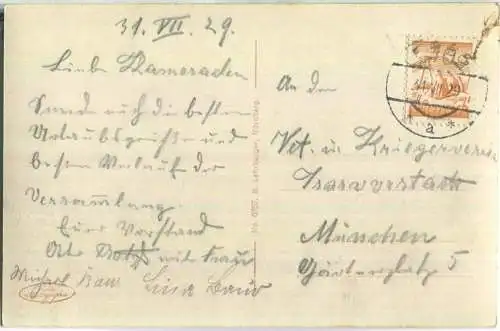 31. VII. 29.
Liebe Kameraden
Sende euch die besten
Urlaubsgrüsse und
besten Verlauf der
Versammlung.
Euer Vorstand
mit Frau
Michael Baur Lina Baur
An den
Vet. u. Kriegerverein
Isarvorstadt
München
Gärtnerplatz 5
a *